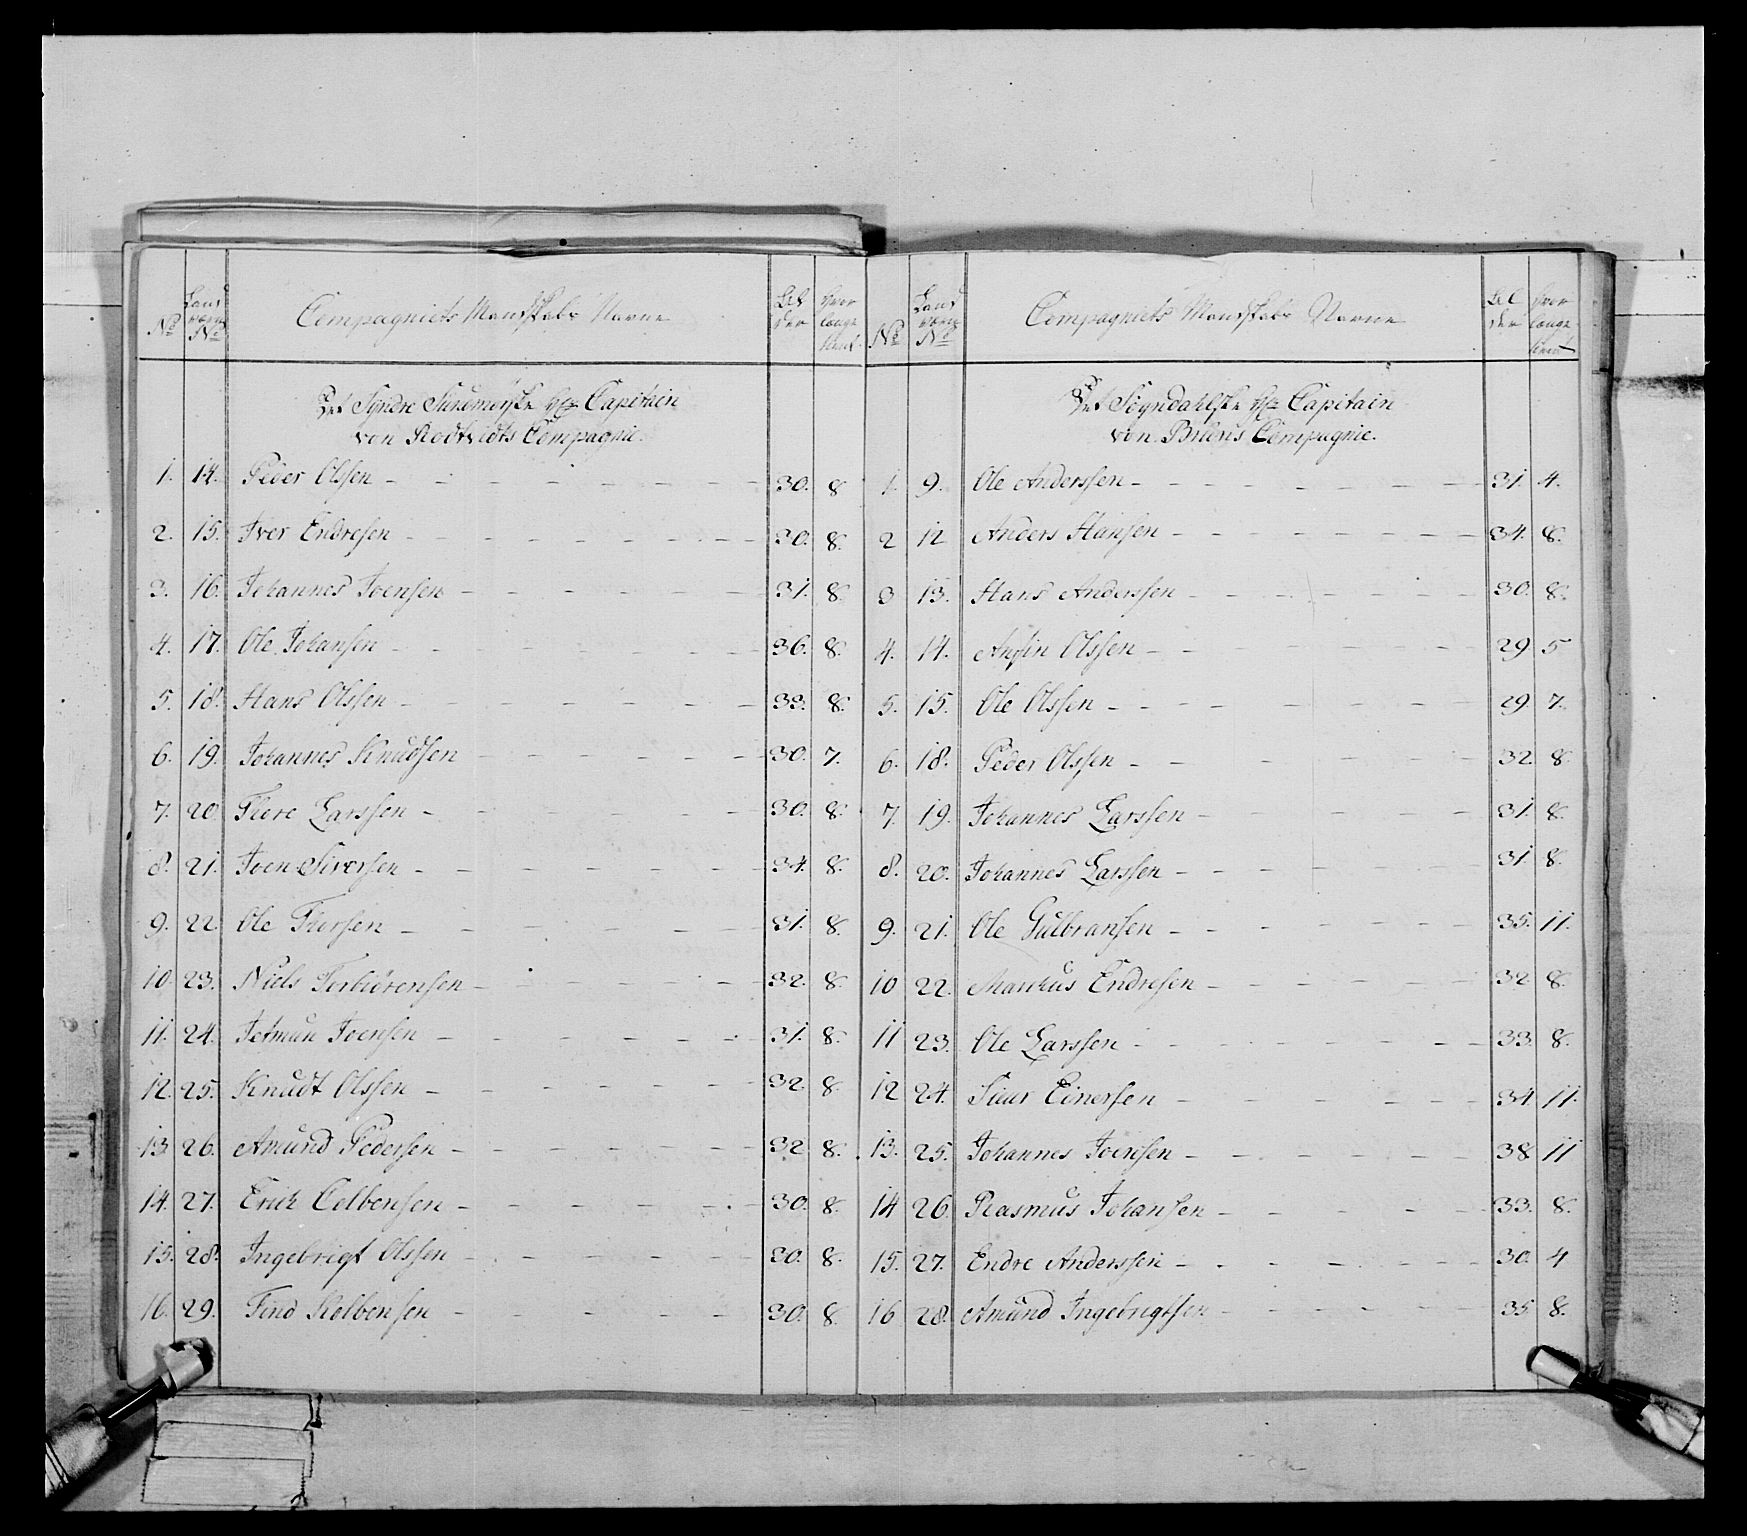 No
Land
værn
No
Compagniets Mandskabs Navne
Al
der
hvor
længe
tient
Det Syndre Sundmørske Hr Capitain
von Compagnie.
1. 14. Peder Olssen 30. 8
2. 15. Iver Endresen 30. 8.
3. 16. Johannes Joensen 31. 8.
4. 17. Ole Johansen 36. 8.
5. 18. Hans Olssen 33. 8.
6. 19. Johannes Knudsen 30. 7.
7. 20 Thore Larssen 30. 8.
8. 21. Joen Siversen 34. 8.
9. 22 Ole Thorsen 31. 8.
10. 23. Niels Torbiörensen 32. 8.
11. 24. Jetmun Joensen 31. 8.
12. 25. Knudt Olssen 32. 8.
13. 26. Amund Pedersen 32 8.
14. 27. Erich Colbensen 30. 8.
15. 28. Ingebrigt Olssen 30. 8.
16. 29. Find Kolbensen 30. 8.
No
Land
værn
No
Compagniets Mandskabs Navne
Al
der
hvor
længe
tient
Det Sogndahlske Hr Capitain
von Bruns Compagnie.
1. 9. Ole Anderssen 31. 4.
2 12 Anders Hansen 34. 8.
3 13. Hans Anderssen 30. 8.
4. 14. Ansin Olssen 29 5
5. 15. Ole Olssen 29. 7.
6. 18. Peder Olssen 32 8.
7. 19. Johannes Larssen 31. 8.
8. 20. Johannes Larssen 31 8.
9. 21. Ole Gulbransen 35. 11.
10 22. Markus Endresen 32 8.
11 23. Ole Larssen 33. 8.
12 24. Siur Einersen 34 11.
13. 25. Johannes Joensen 38 11
14 26. Rasmus Johansen 33. 8.
15. 27. Endre Anderssen 30. 4
16 28. Amund Ingebrigtsen 35 8.